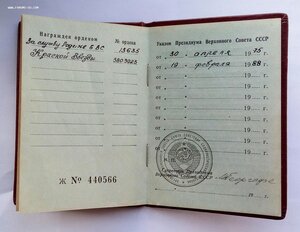 www.faleristika.com
Награжден орденом № ордена
За службу Родине в ВС 13635
Красной Звезды 3809028
Ж № 440566
Указом Президиума Верховного Совета СССР
от 30 апреля 1975 г.
от 19 февраля 1988 г.
от 19 г.
от 19 г.
от 19 г.
от 19 г.
от 19 г.
от 19 г.
М. П.
Секретарь Президиума
Верховного Совета СССР
19 г.